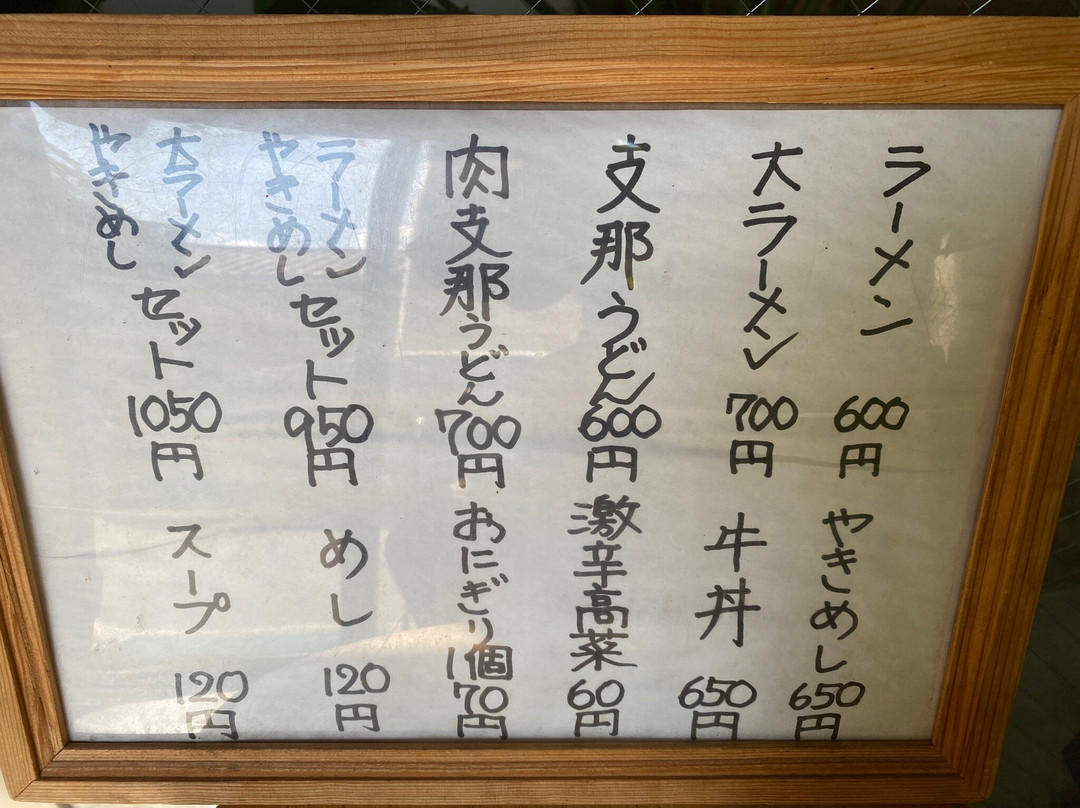 ラーメン 600円
大ラーメン 700円
支那うどん 600円
肉支那うどん 700円
ラーメン
やきめし
セット 950円
大ラーメン
やきめし
セット 1050円
やきめし 650円
牛丼 650円
激辛高菜 60円
おにぎり1個 70円
めし 120円
スープ 120円